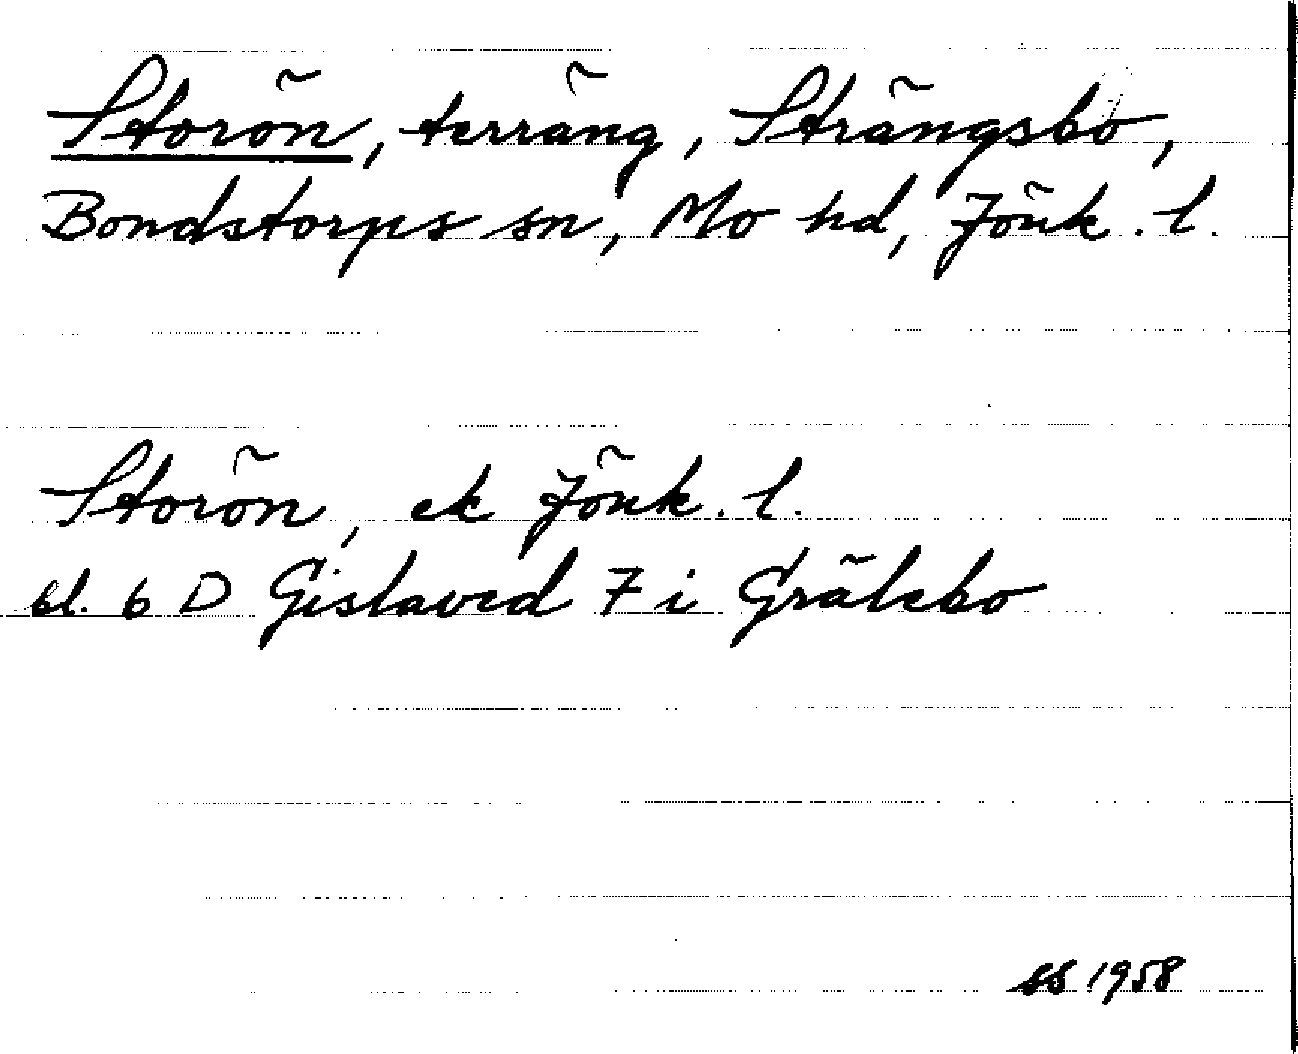 Storön, terräng, Strängsbo,
Bondstorps sn, Mo hd, Jönk. l.
Storön, ek Jönk. l.
bl. 6 D Gislaved 7 i Grälebo
SS 1958